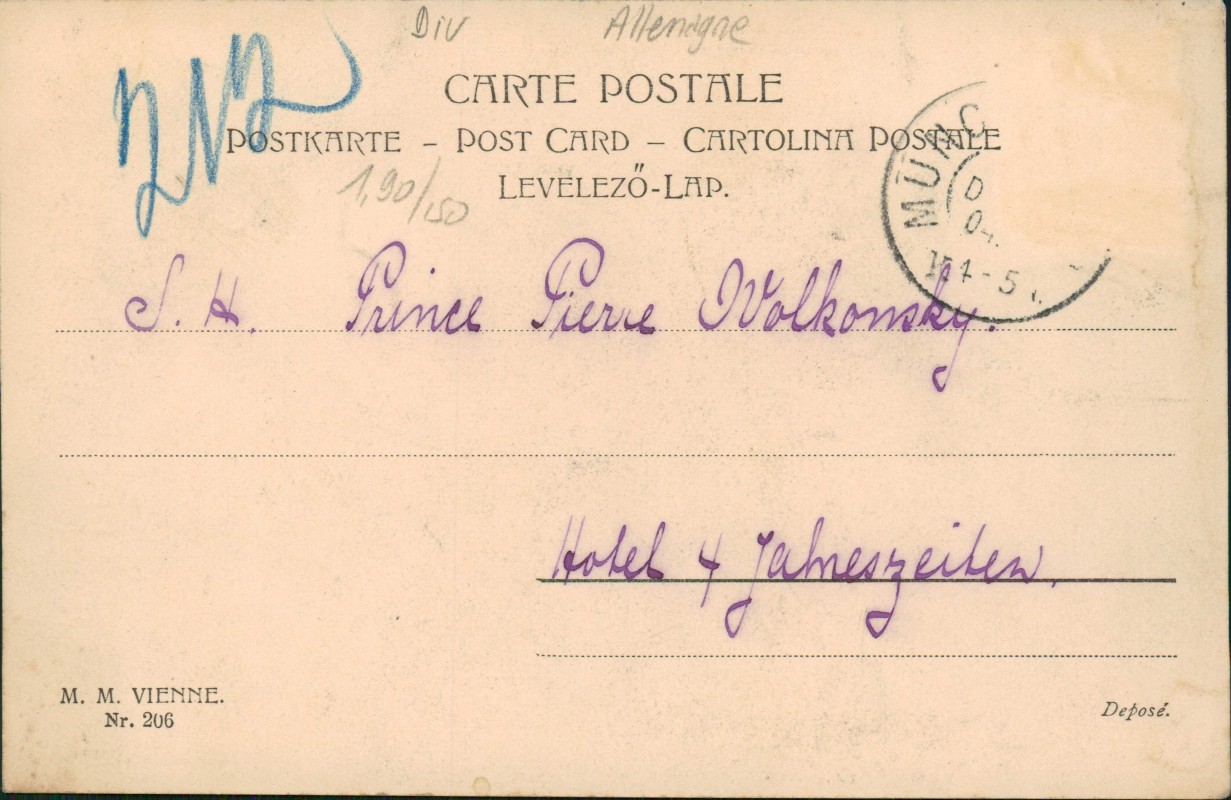 Div Allemagne
212
CARTE POSTALE
POSTKARTE – POST CARD – CARTOLINA POSTALE
LEVELEZŐ-LAP.
1,90/150
MÜNC
D
04.
4-5
S. H. Prince Pierre Wolkonsky.
Hotel 4 Jahreszeiten.
M. M. VIENNE.
Nr. 206
Deposé.